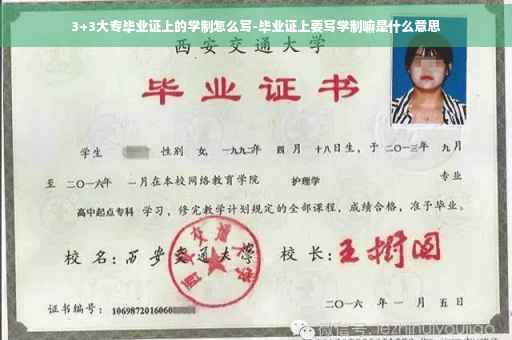 3+3大专毕业证上的学制怎么写-毕业证上要写学制嘛是什么意思
西安交通大学
毕业证书
学生 性别 女, 一九九二年 四月 十八日生, 于二〇一三年 九月
至 二〇一六年 一月在本校网络教育学院 护理学 专业
高中起点专科 学习, 修完教学计划规定的全部课程, 成绩合格, 准予毕业。
校名: 西安交通大学 校长: 王树国
西安交通大学
证书编号: 1069872016060
二〇一六 年 一 月 五 日
微信号: jezhihuiyoujiao